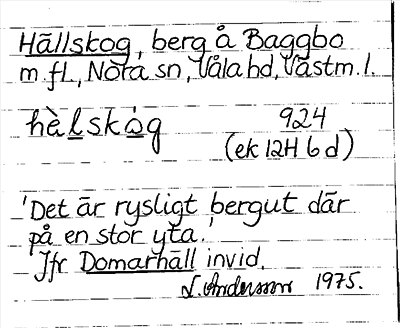 Hällskog, berg å Baggbo
m.fl., Nora sn, Våla hd, Västm. l.
hèlskóg 924
(ek 12H 6 d)
'Det är rysligt bergut där
på en stor yta.'
Jfr Domarhäll invid.
L. Andersson 1975.